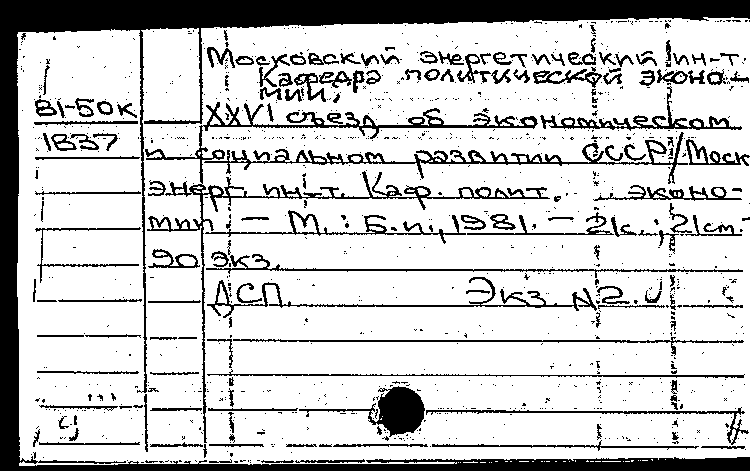 Московский энергетический ин-т.
Кафедра политической эконо-
мии.
В1-50к
1837
XXVI съезд об экономическом
и социальном развитии СССР/Моск
энерг. ин-т. Каф. полит. эконо-
мии. — М.: Б.и., 1981. — 21с.; 21см.-
90 экз.
ДСП. Экз. N2.